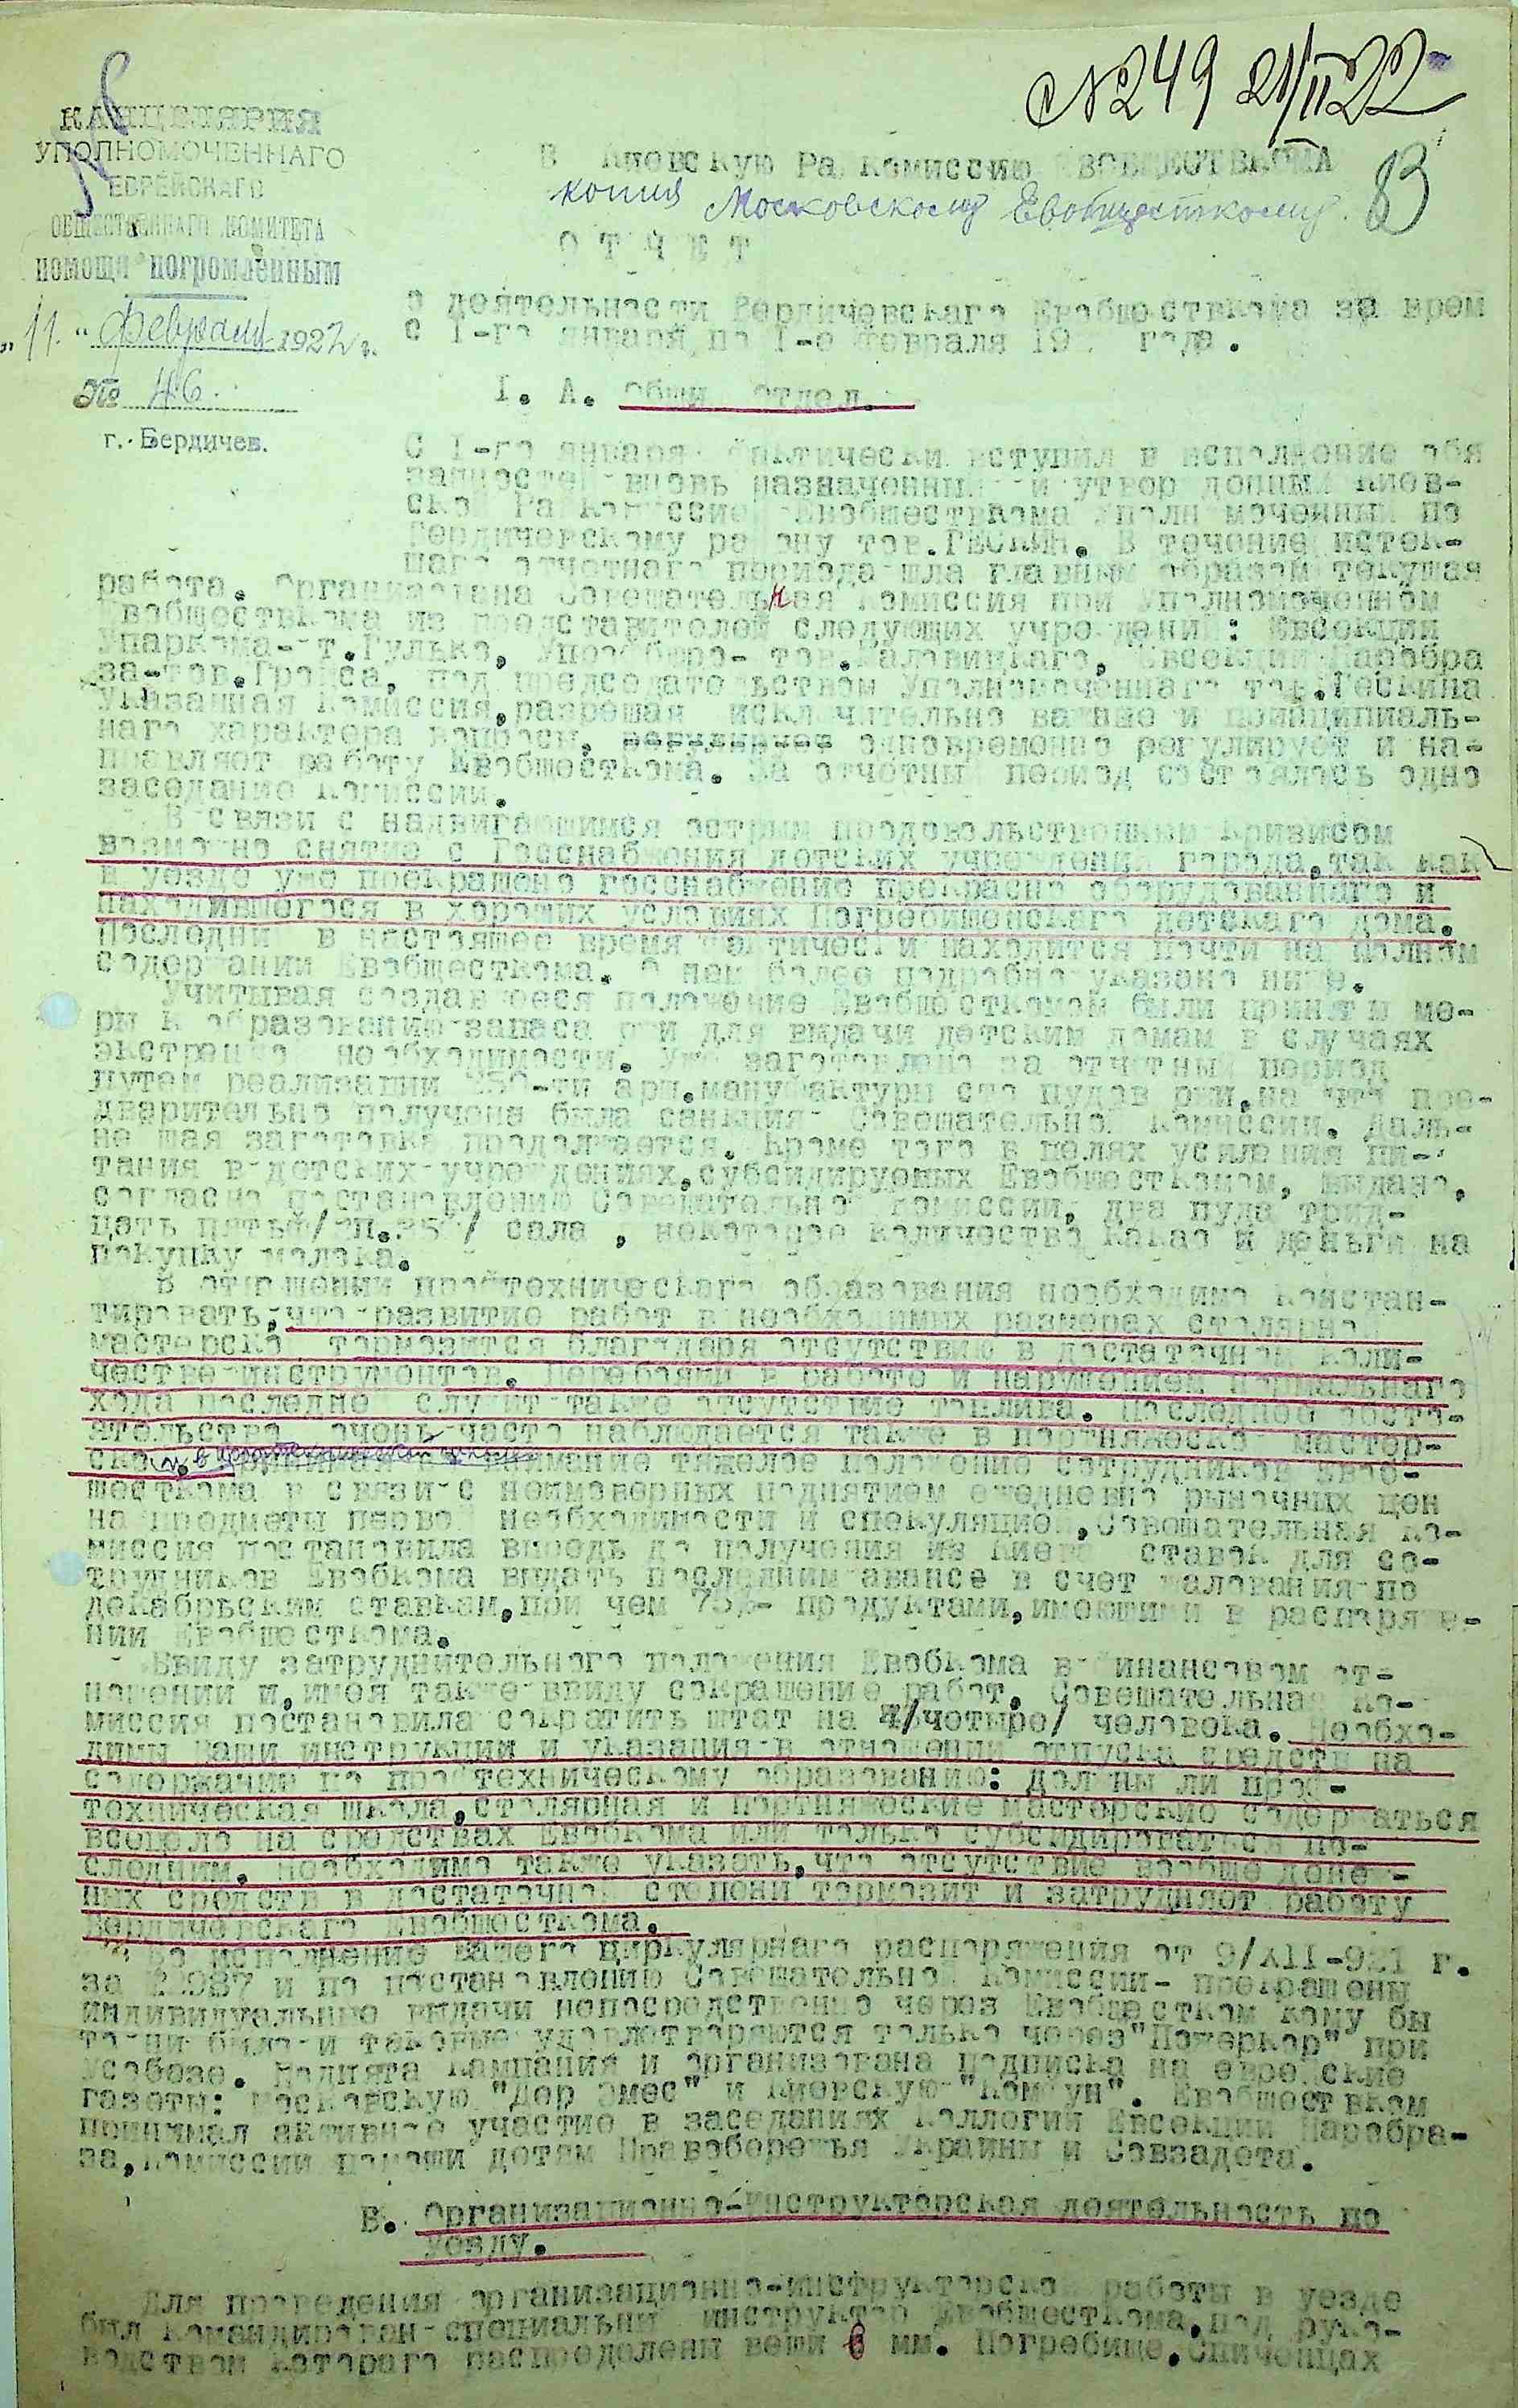 №249 21/II22
КАНЦЕЛЯРИЯ
УПОЛНОМОЧЕННАГО
ЕВРЕЙСКАГО
ОБЩЕСТВЕННАГО КОМИТЕТА
ПОМОЩИ ПОГРОМЛЕННЫМ
"11" февраля 1922 г.
№ 46.
г. Бердичев.
В Киевскую Рай Комиссию ЕВОБЩЕСТВКОМА
копия Московскому Евобщесткому.
83
ОТЧЕТ
о деятельности Бердичевскаго Евобщесткома за врем
с I-го января по I-е февраля 19 года.
I. А. Общий отдел.
С I-го января фактически вступил в исполнение обя
занностей вновь назначенный и утвержденный Киев-
ской Рай Комиссией Евобшествкома Уполномоченный по
Бердичевскому району тов.ГЕСКИН. В течение истек-
шаго отчетнаго периода шла главным образом текущая
работа. Организована Совещательная Комиссия при Уполномоченном
Евобшествкома из представителей следующих учреждений: Евсекции
Упаркома- т.Гулько, тов. Евсекции Наробра
за-тов. под председательством Уполномоченнаго тов.Гескина
Указанная Комиссия,разрешая исключительно важные и принципиаль-
наго характера вопросы, одновременно регулирует и на-
правляет работу Евобшесткома. За отчетный период состоялось одно
заседание Комиссии.
В связи с надвигающимся острым продовольственным кризисом
возможно снятие с Госснабжения детских учреждений города,так как
в уезде уже прекращено госснабжение прекрасно оборудованнаго и
находившегося в хороших условиях Погребищенскаго детскаго дома.
Последний в настоящее время фактически находится почти на полном
содержании Евобшесткома. О нем более подробно указано ниже.
Учитывая создавшееся положение Евобшесткомом были приняты ме-
ры к образованию запаса ржи для выдачи детским домам в случаях
экстренной необходимости. Уже заготовлено за отчетный период
путем реализации 250-ти арш.мануфактуры сто пудов ржи,на что пре-
дварительно получена была санкция Совещательной Комиссии. Даль-
нейшая заготовка продолжается. Кроме того в целях усиления пи-
тания в детских учреждениях,субсидируемых Евобшесткомом, выдано,
согласно постановлению Совещательной Комиссии, два пуда трид-
цать пять ф/ сала , некоторое количество какао и деньги на
покупку молока.
В отношении профтехническаго образования необходимо констан-
тировать,что развитие работ в необходимых размерах столярной
мастерской тормозится благодаря отсутствию в достаточном коли-
честве инструментов. Перебоями в работе и нарушением нормальнаго
хода последней служит также отсутствие топлива. Последнее обсто-
ятельство очень часто наблюдается также в портняжеской мастер-
ской. Принимая во внимание тяжелое положение сотрудников Евоб-
шесткома в связи с неимоверных поднятием ежедневно рыночных цен
на предметы первой необходимости и спекуляцией,Совещательная Ко-
миссия постановила впредь до получения из Киева ставок для со-
трудников Евобкома выдать последним авансе в счет жалования по
декабрьским ставкам,при чем 75%- продуктами,имеющими в распоряже-
нии Евобшесткома.
Ввиду затруднительного положения Евобкома в финансовом от-
ношении и,имея также ввиду сокращение работ, Совещательная Ко-
миссия постановила сократить штат на 4/четыре/ человека. Необхо-
димы Ваши инструкции и указания в отношении отпуска средств на
содержание по профтехническому образованию: должны ли проф-
техническая школа,столярная и портняжеские мастерские содержаться
всецело на средствах Евобкома или только субсидироваться по-
следним. Необходимо также указать,что отсутствие вообще денеж-
ных средств в достаточной степени тормозит и затрудняет работу
Бердичевскаго Евобшесткома.
Во исполнение Вашего циркулярнаго распоряжения от 9/XII-921 г.
за 2.987 и по постановлению Совещательной Комиссии- прекращены
индивидуальные выдачи непосредственно через Евобшестком кому бы
то ни было и таковые удовлетворяются только через"Потеркор" при
Усобезе. Поднята кампания и организована подписка на еврейские
газеты: Московскую "Дер Эмес" и Киевскую "Комфун". Евобшествком
принимал активное участие в заседаниях Коллегии Евсекции Наробра-
за,Комиссии помощи детям Правобережья Украины и Соввздета.
В. Организационно-инструкторская деятельность по
уезду.
Для проведения организационно-инструкторской работы в уезде
был командирован специальный инструктор Евобшесткома,под руко-
водством котораго распределены вещи в мм. Погребище,Спиченцах